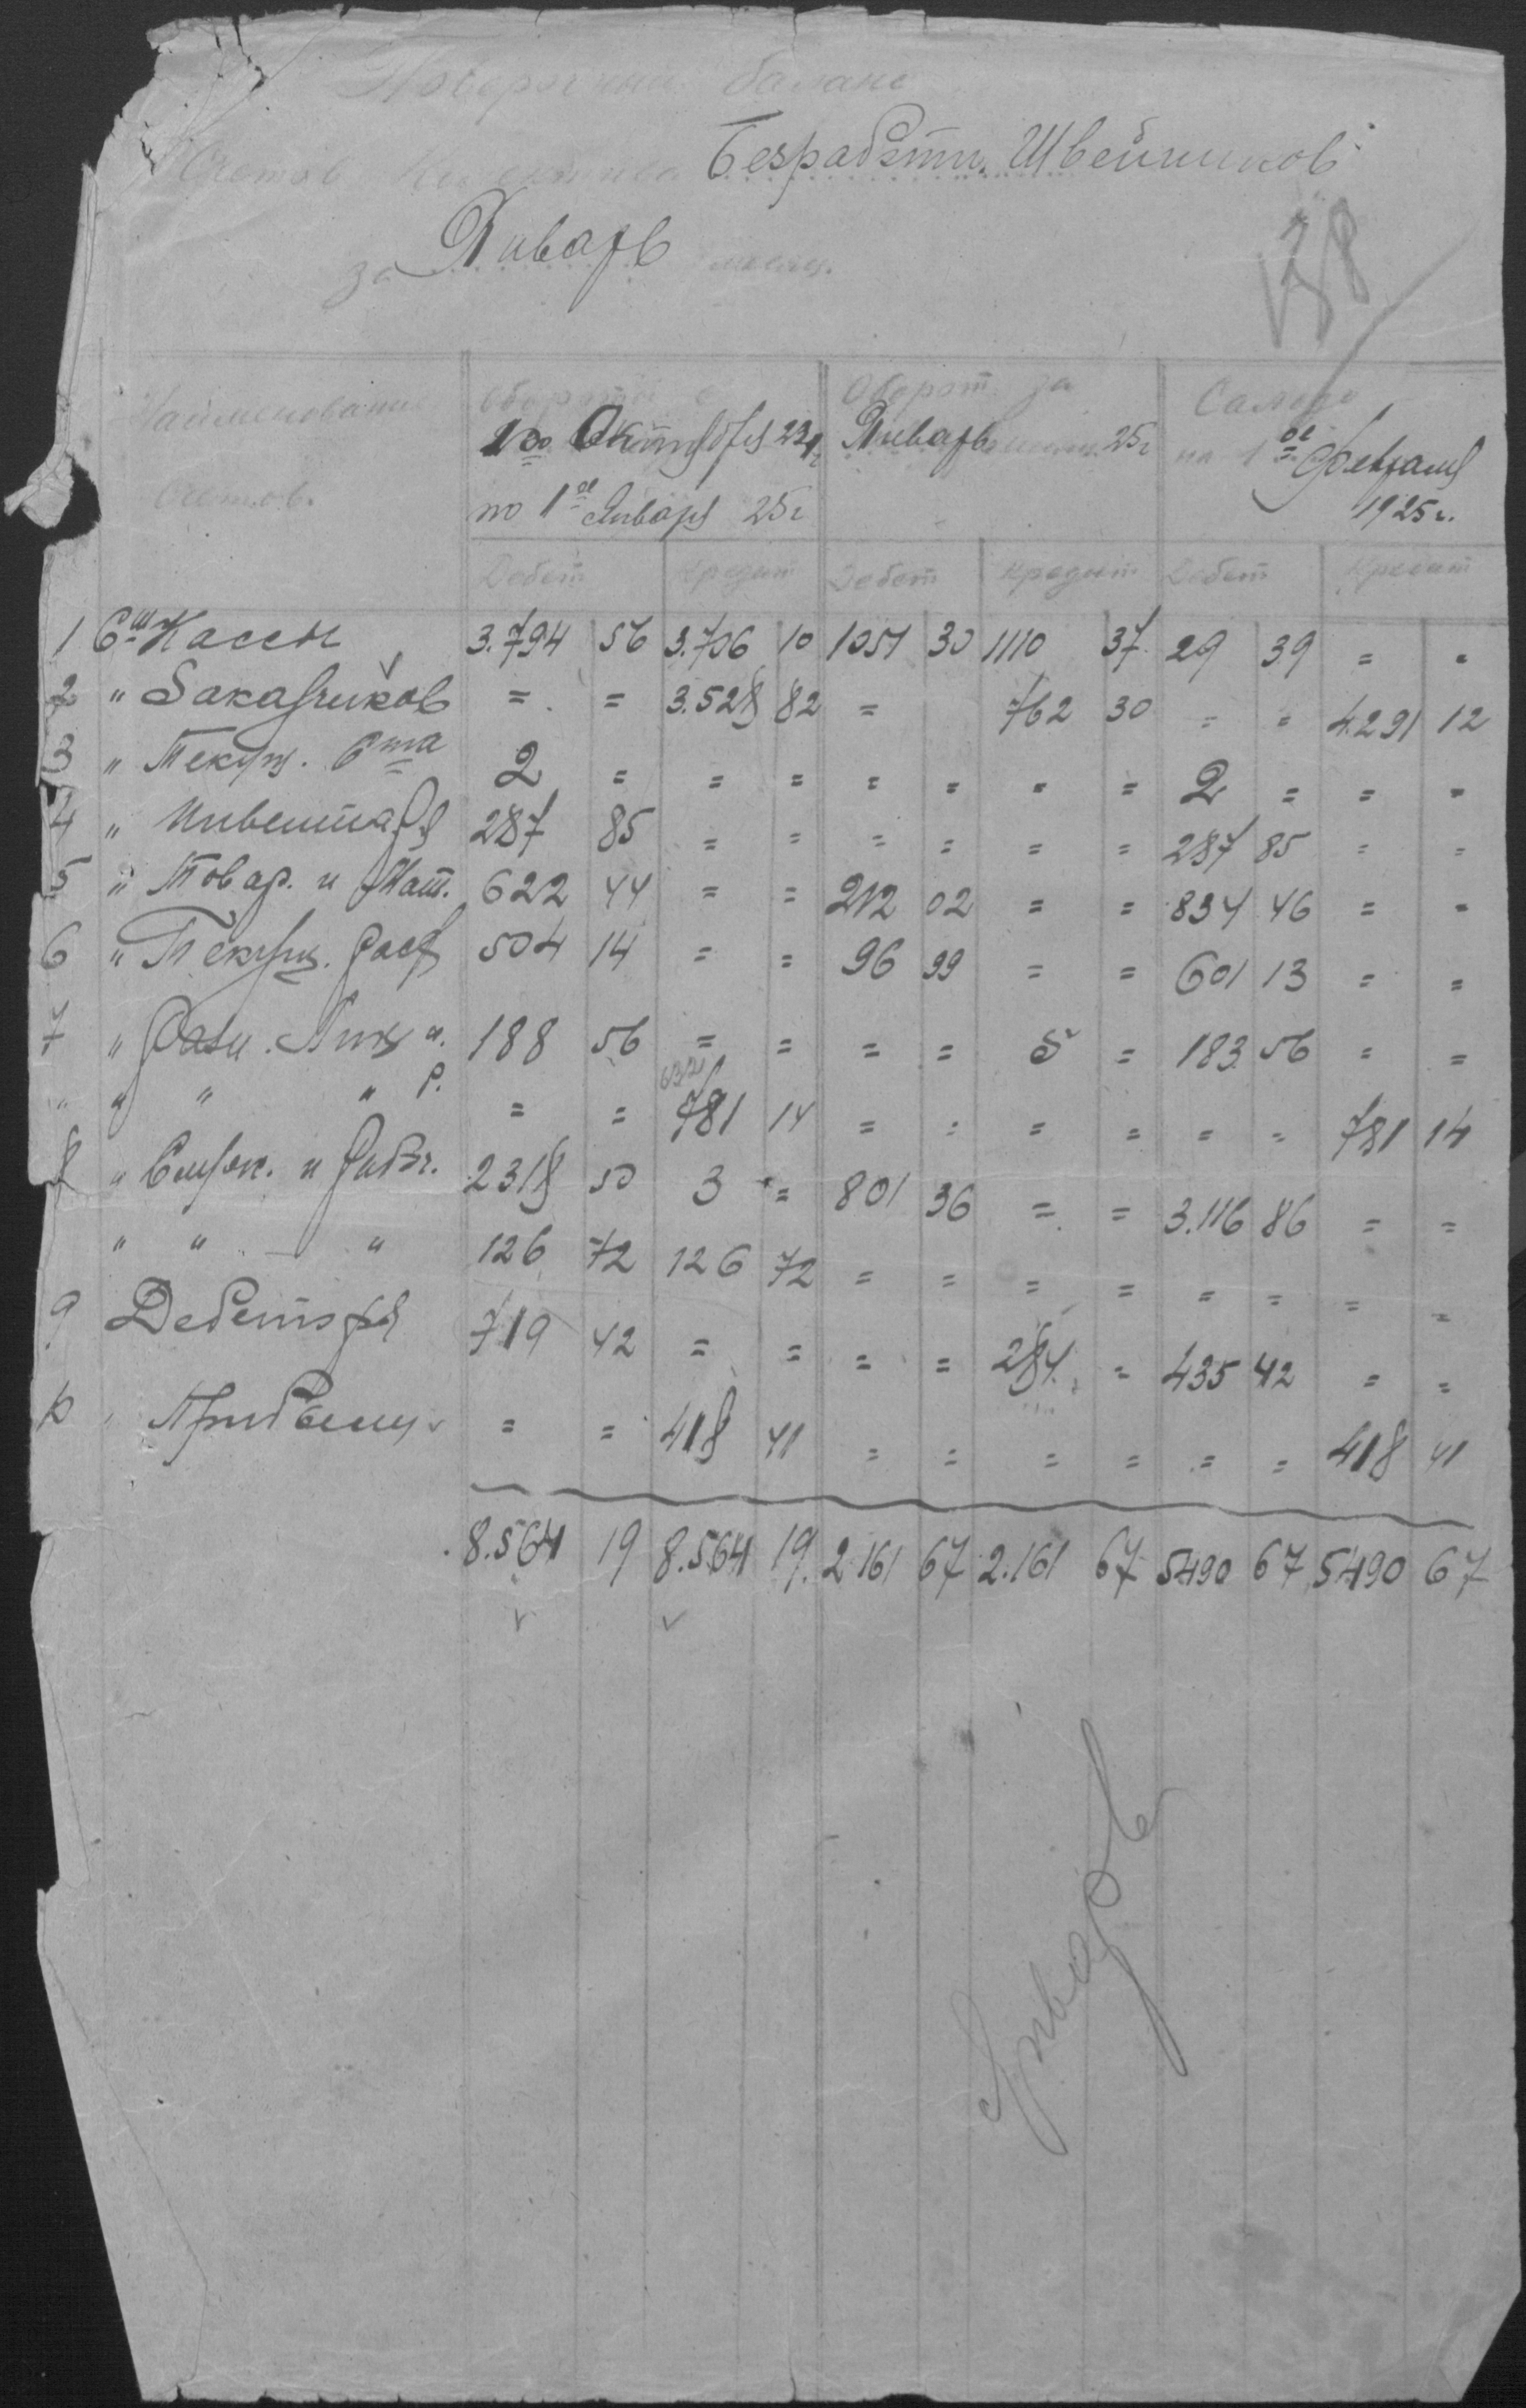 Поверочный баланс
Счетов Коллектива Безработн. Швейников
за Январь месяц.
Наименование Счетов.
Обороты с 1го Октября 23г. по 1ое Января 25г
Оборот за Январь месяц 25г
Сальдо на 1ое Февраля 1925г.
Дебет Кредит Дебет Кредит Дебет Кредит
1 Сч Кассы 3.794 56 3.706 10 1051 30 1110 37 29 39 = =
2 " Заказчиков = = 3.528 82 = 762 30 = = 4.291 12
3 " Текущ. Счета 2 = = = = = = = 2 = = =
4 " Инвентаря 287 85 = = = = = = 287 85 = =
5 " Товар. и Мат. 622 44 = = 212 02 = = 834 46 = =
6 " Текущ. расх 504 14 = = 96 99 = = 601 13 = =
7 " Разн. Лиц и. 188 56 = = = = 5 = 183 56 = =
" " " " Р. = = 781 14 = = = = = = 781 14
8 " Служ. и Рабоч. 2318 50 3 = 801 36 = = 3.116 86 = =
" " " 126 72 126 72 = = = = = = = =
9 Дебеторы 719 42 = = = = 284 = 435 42 = =
10 " Прибылей = = 418 41 = = = = = = 418 41
8.564 19 8.564 19 2.161 67 2.161 67 5490 67 5490 67
Январь